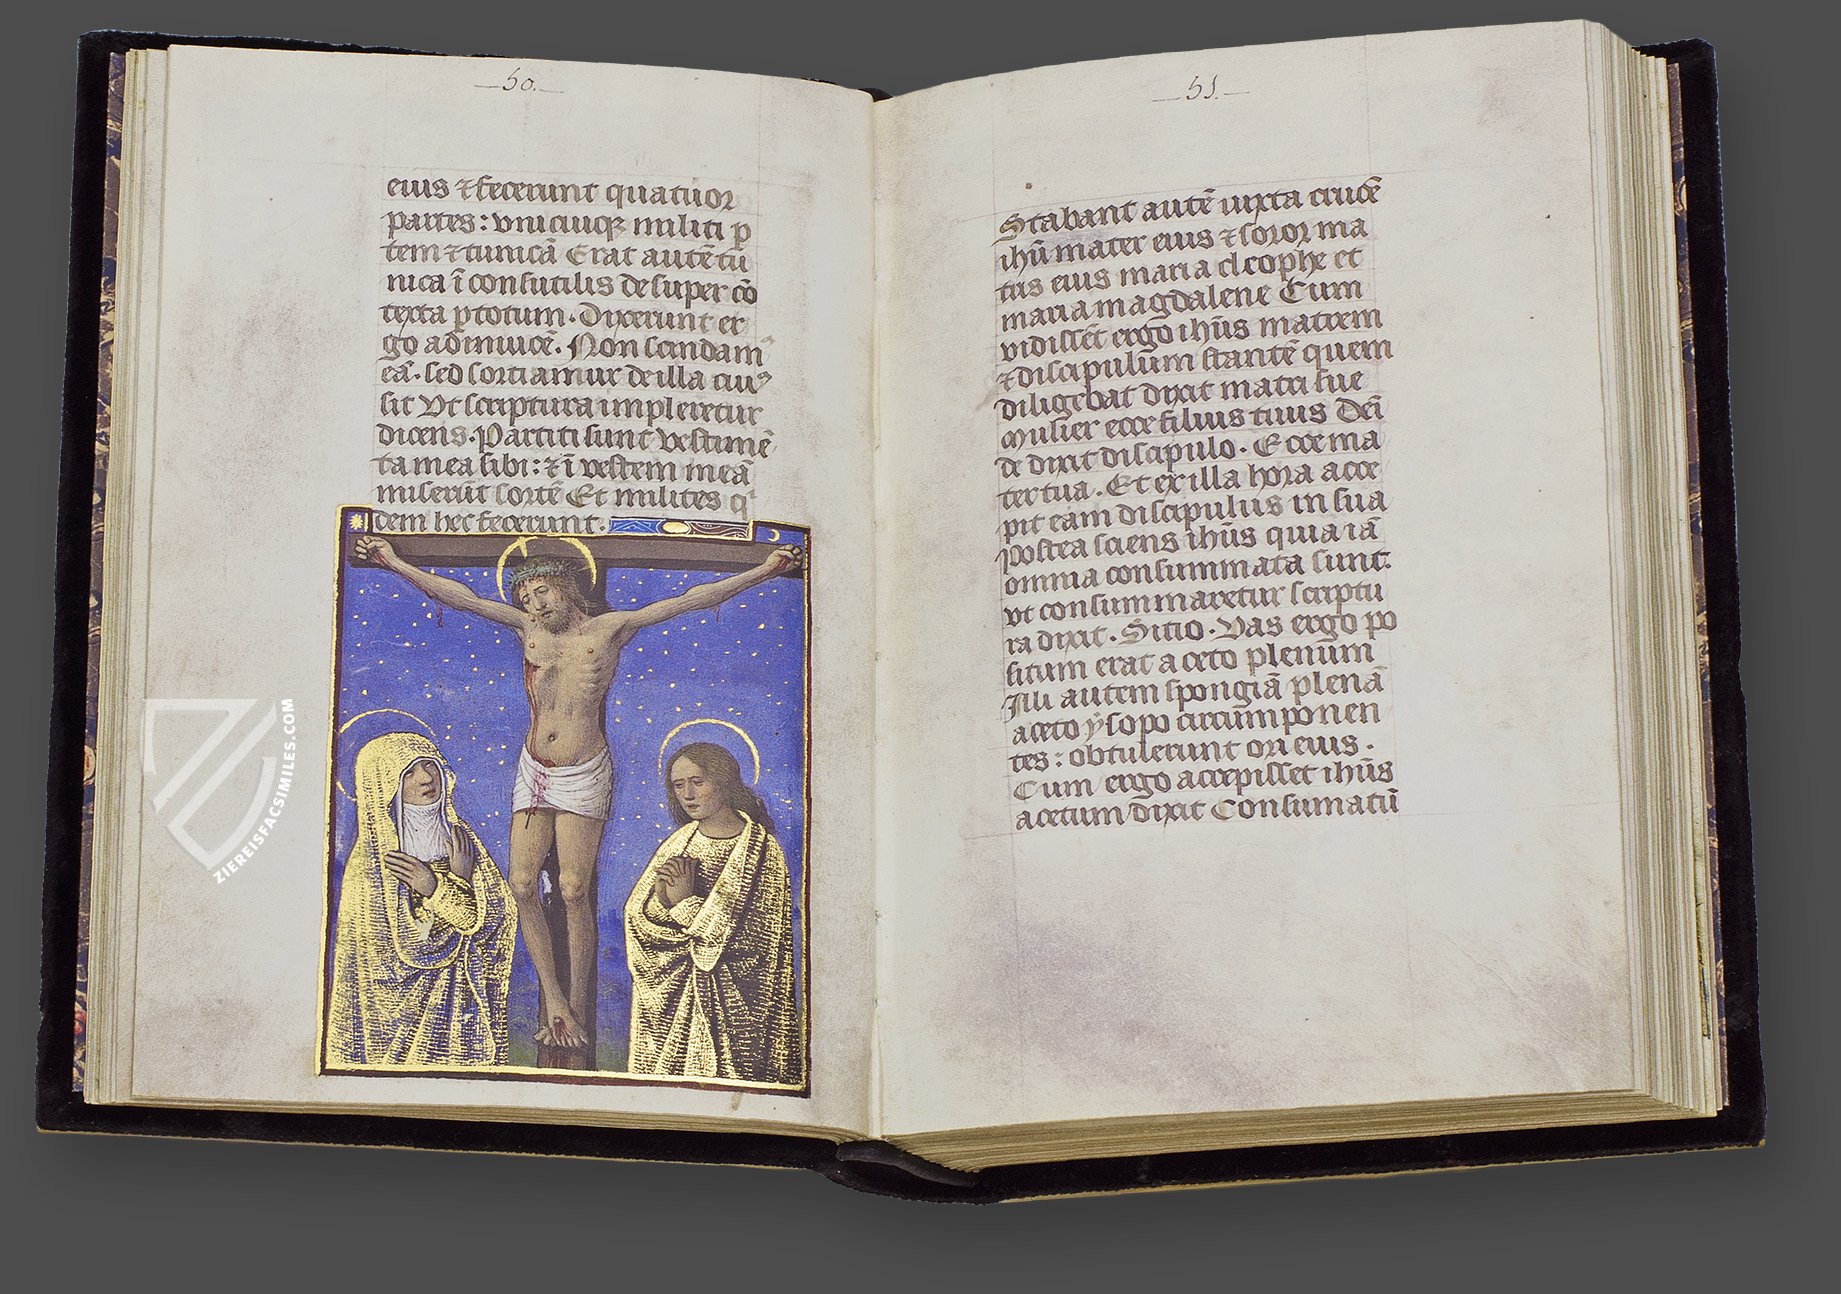 —50.—
eius ⁊ fecerunt quatuor
partes: vnicuiqꝫ militi ꝑ
tem ⁊ tunicā Erat autē tu
nica ī consutilis desuper cō
texta ꝑ totum. Dixerunt er
go adīnuicē. Non scindamꝰ
eā. sed sortiamur de illa cuiꝰ
sit Vt scriptura impleretur
dicens. Partiti sunt vestimē
ta mea sibi: ⁊ ī vestem meā
miserūt sortē Et milites q
dem hec fecerunt:
—51.—
Stabant autē iuxta crucē
ihū mater eius ⁊ soror ma
tris eius maria cleophe et
maria magdalene Cum
vidisset ergo ihūs matrem
⁊ discipulum stantē quem
diligebat dixit matri sue
Mulier ecce filius tuus Deī
de dixit discipulo. Ecce ma
ter tua. Et ex illa hora acce
pit eam discipulus in sua
Postea sciens ihūs quia iā
omnia consummata sunt.
vt consummaretur scriptu
ra dixit. Sitio. Vas ergo po
situm erat aceto plenum
Illi autem spongiā plenā
aceto ysopo circumponen
tes: obtulerunt ori eius.
Cum ergo accepisset ihūs
acetum dixit Consumatū
ZIEREISFACSIMILES.COM